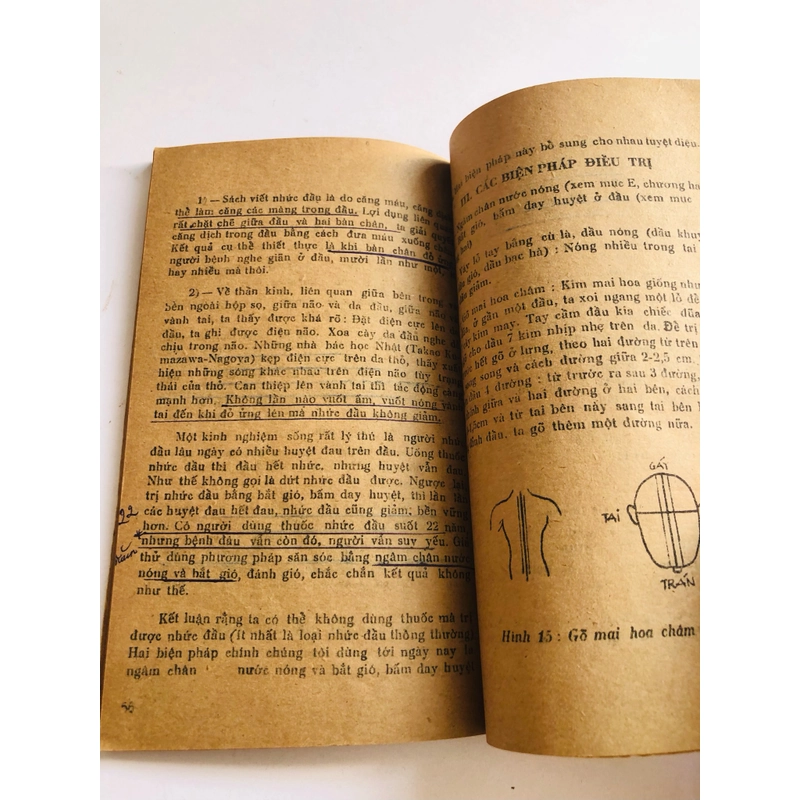 1) — Sách viết nhức đầu là do căng máu, căng
thể làm căng các màng trong đầu. Lợi dụng liên
rất chặt chẽ giữa đầu và hai bàn chân, ta giải
căng dịch trong đầu bằng cách đưa máu xuống
Kết quả cụ thể thiết thực là khi bàn chân đỏ
người bệnh nghe giãn ở đầu, mười lần như một,
hay nhiều mà thôi.
2) — Về thần kinh, liên quan giữa bên trong
bên ngoài hộp sọ, giữa não và da đầu, giữa não
vành tai, ta thấy được khá rõ: Đặt điện cực lên
đầu, ta ghi được điện não. Xoa cày da đầu nghe
chịu trong não. Những nhà bác học Nhật (Takao
mazawa-Nagoya) kẹp điện cực trên da thỏ, thấy
hiện những sóng khác nhau trên điện não tùy
thái của thỏ. Can thiệp lên vành tai thì tác động càng
mạnh hơn. Không lần nào vuốt ấm, vuốt nóng vành
tai đến khi đỏ ửng lên mà nhức đầu không giảm.
Một kinh nghiệm sống rất lý thú là người
đầu lâu ngày có nhiều huyệt đau trên đầu. Uống thuốc
nhức đầu thì đầu hết nhức, nhưng huyệt vẫn
Như thế không gọi là dứt nhức đầu được. Ngược lại
trị nhức đầu bằng bắt gió, bấm day huyệt, thì lần
các huyệt đau hết đau, nhức đầu cũng giảm, bền vững
hơn. Có người dùng thuốc nhức đầu suốt 22 năm,
nhưng bệnh đầu vẫn còn đó, người vẫn suy yếu.
thử dùng phương pháp săn sóc bằng ngâm chân nước
nóng và bắt gió, đánh gió, chắc chắn kết quả không
như thế.
22
năm
Kết luận rằng ta có thể không dùng thuốc mà trị
được nhức đầu (ít nhất là loại nhức đầu thông thường)
Hai biện pháp chính chúng tôi dùng tới ngày nay là
ngâm chân nước nóng và bắt gió, bấm day huyệt
56
biện pháp này bổ sung cho nhau tuyệt diệu.
III. CÁC BIỆN PHÁP ĐIỀU TRỊ
chân nước nóng (xem mục E, chương
gió, bấm day huyệt ở đầu (xem mục
lỗ tay bằng củ lả, dầu nóng (dầu khuynh
gió, dầu bạc hà) : Nóng nhiều trong tai
giảm.
mai hoa châm : Kim mai hoa giống như
ở gần một đầu, ta xoi ngang một lỗ để
kim may. Tay cầm đầu kia chiếc đũa
cho đầu 7 kim nhịp nhẹ trên da. Để trị
hết gõ ở lưng, theo hai đường từ trên
song và cách đường giữa 2-2,5 cm.
đầu 4 đường : từ trước ra sau 3 đường,
giữa và hai đường ở hai bên, cách
cm và từ tai bên này sang tai bên
đỉnh đầu, ta gõ thêm một đường nữa.
GÁY
TAI
TRÁN
Hình 15 : Gõ mai hoa châm